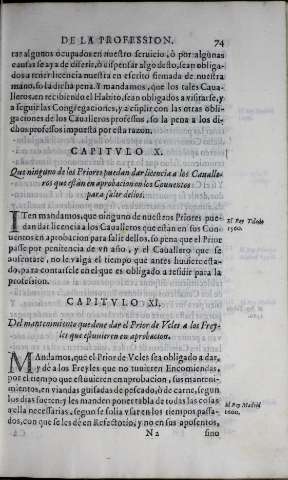 DE LA PROFESSION. 74
rar algunos ocupados en nuestro seruicio, ò por algunas
causas se aya de diferir, ò dispensar algo desto, sean obliga-
dos a tener licencia nuestra en escrito firmada de nuestra
mano, so la dicha pena. Y mandamos, que los tales Caua-
lleros, en recibiendo el Habito, sean obligados a visitarse, y
a seguir las Congregaciones, y a cũplir con las otras obli-
gaciones de los Caualleros professos, so la pena a los di-
chos professos impuesta por esta razon.
CAPITVLO X.
Que ninguno de los Priores puedan dar licencia a los Cauallе-
ros que están en aprobacion en los Conuentos
para salir dellos.
ITen mandamos, que ninguno de nuestros Priores pue-
dan dar licencia a los Caualleros que están en sus Con-
uentos en aprobacion para salir dellos, so pena que el Prior
passe por penitencia de vn año, y el Cauallero que se
ausentare, no le valga el tiempo que antes huuiere esta-
do, para contarsele en el que es obligado a residir para la
profession.
El Rey Toledo
1560.
CAPITVLO XI.
Del mantenimiento que deue dar el Prior de Vcles a los Frey-
les que estuuieren en aprobacion.
MAndamos, que el Prior de Vcles sea obligado a dar,
y dè a los Freyles que no tuuieren Encomiendas,
por el tiempo que estuuieren en aprobacion, sus manteni-
mientos, en viandas guisadas de pescado, ò de carne, segun
los dias fueren: y les manden poner tabla de todas las cosas
a ella necessarias, segun se solia vsar en los tiempos passa-
dos, con que se les dè en Refectorio, y no en sus aposentos,
El Rey Madrid
1600.
N 2 sino